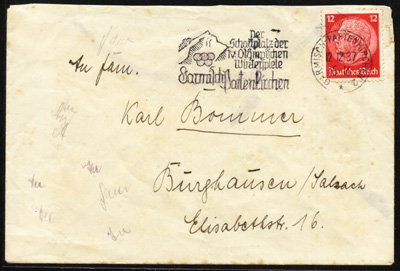 Der
Schauplatz der
IV. Olympischen
Winterspiele
Garmisch Partenkirchen
12 12
Deutsches Reich
GARMISCH-PARTENKIRCHEN 2
12.37
An Fam.
Karl Bommer
Burghausen/Salzach
Elisabethstr. 16.